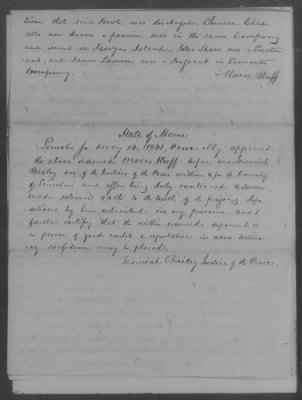 time that said Fowle was discharged. Ebenezer Chase
who now draws a pension was in the same Company
and served on Swans Island. John Shaw was a Lieuten
ant, and James Lemon was a Sergeant in
Company.
Moses Huff
State of Maine
Lincoln ss. May 12, 1841, Personally appeared
the above named Moses Huff before me Jeremiah
Bailey one of the Justices of the Peace within & for the County
of Lincoln and after being duly cautioned & sworn
made solemn oath to the truth of the foregoing depo
sitions by him subscribed in my presence, and I
further certify that the within named deponent is
a person of good credit & reputation in whose
confidence may be placed,
Jeremiah Bailey Justice of the Peace.